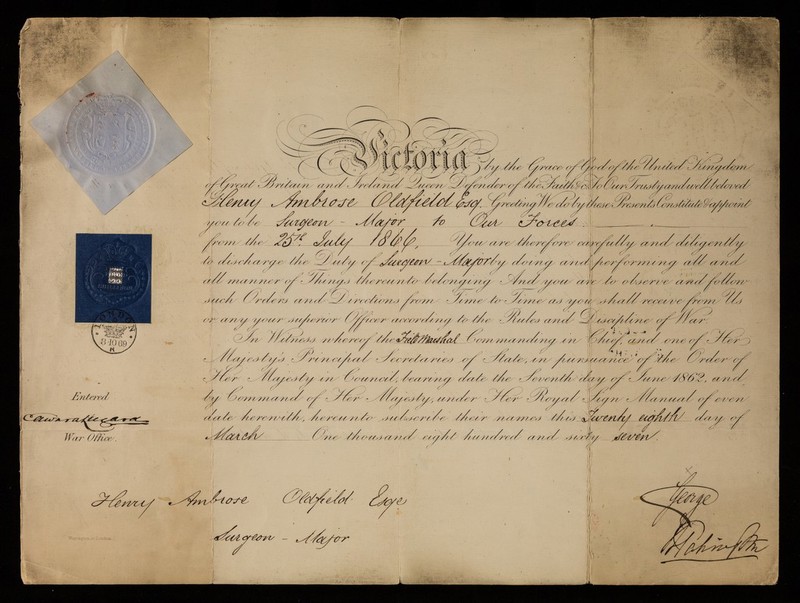 Victoria by the Grace of God of the United Kingdom
of Great Britain and Ireland Queen Defender of the Faith &c. To Our Trusty and well beloved
Henry Ambrose Oldfield Esq. Greeting We do by these Presents Constitute & appoint
you to be Surgeon - Major to Our Forces
from the 25th July 1866. You are therefore carefully and diligently
to discharge the Duty of Surgeon - Major by doing and performing all and
all manner of Things thereunto belonging And you are to observe and follow
such Orders and Directions from Time to Time as you shall receive from Us
or any your superior Officer according to the Rules and Discipline of War
In Witness whereof the Field Marshal Commanding in Chief, and one of Her
Majesty's Principal Secretaries of State, in pursuance of the Order of
Her Majesty in Council, bearing date the Seventh day of June 1862, and
by Command of Her Majesty, under Her Royal Sign Manual of even
date herewith, hereunto subscribe their names this Twenty eighth day of
March One thousand eight hundred and sixty seven.
LONDON
Entered
War Office.
Henry Ambrose Oldfield Esqre
Surgeon - Major
George